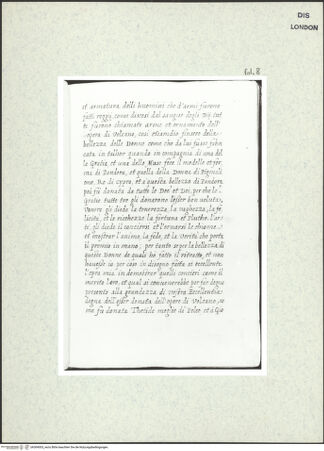 DIS
LONDON
fol. 8
et armatura delli huomini che d'armi furono
fatti roggi, come discesi dal sangue degli Dei tut
te furono chiamate arme et ornamento dell'
opera di Volcano, così etiandio finsero della
bellezza delle Donne come da lui fusse fabri
cata in tallier quando in compagnia di una del
le Gratie et una delle Muse fece il modello et for
ma di Pandora, et quella della Donna di Pigmali
one, Re di Cypro, et a questa bellezza di Pandora
poi fu donata da tutte le Dee et Dei, per che le
Gratie tutte tre gli donorono l'esser ben voluta,
Venere gli diede la tenerezza, la vaghezza, la fe
licità, et le ricchezze la fortuna et Plutho. L'ar
ti gli diede il
et mostrar l'animo, la fede, et la Verità che porta
il premio in mano; per tanto se per la bellezza di
queste Donne de quali hò fatto il ritratto, et non
havesse io per caso in disegno fatta sì eccellente
l'opra mia in demostrar quelli concieri come il
merito loro, et qual si converrebbe per far degno
presente alla grandezza di vostra Eccellentia
degna dell'esser donata dell'opere di Volcano, se
me fu donata Thetide moglie di Peleo et à Gio